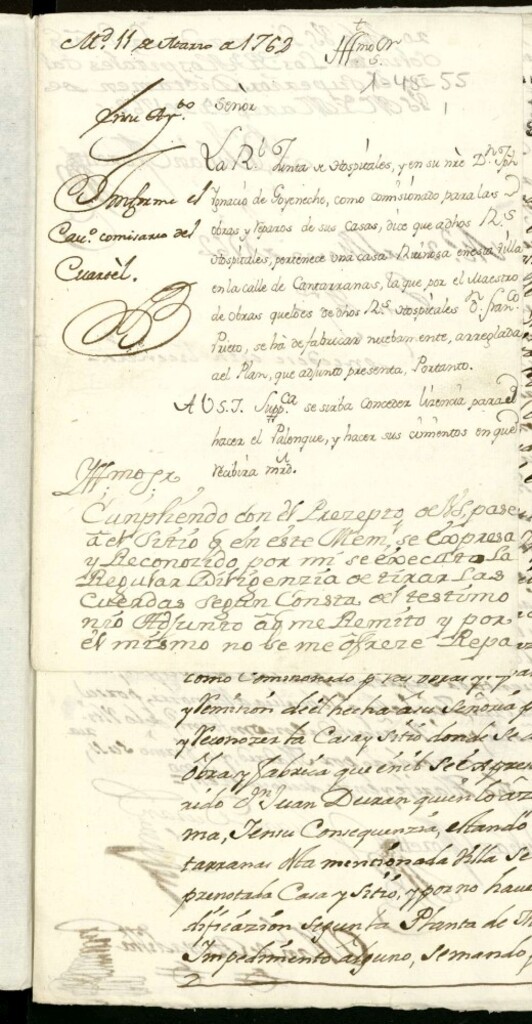 Md. 11 de Marzo de 1762
Yllmo Sr
1-48-55
Señor
La Rl. Junta de Hospitales, y en su nre Dn. Jph
Ignacio de Goyeneche, como comisionado para las
obras y reparos de sus Casas, dice que adhos Rs.
Hospitales, pertenece una casa Ruinosa en esta villa
en la calle de Cantarranas, la que por el Maestro
de obras que lo es de dhos Rs. Hospitales Dn. Franco
Prieto, se ha de fabricar nuebamente, arreglada
ael Plan, que adjunto presenta, Portanto.
A V.S.I. Suppca. se sirba conceder licencia para el
hacer el Palenque, y hacer sus cimentos en que
recibira mrd.
Informe el
Cavo. comisario del
Cuartèl.
Yllmo Sr
Cunpliendo con el Prezepto de VS, pase
a el Sitio q. en este Mem. se expresa
y Reconozido por mi se executo la
Regular Dilixenzia de tirar las
Cuerdas segun Consta del testimo
nio Adjunto a q. me Remito y por
el mismo no se me ofreze Repa
como Comisionado p.
y remision de el hecha a su Señoria p
y reconozer la Casa y sitio donde se
obra y fabrica que en el se expres
rido Dn. Juan Duran quien lo
ma, Y ensu Consequenzia, estando
tarranas desta mencionada Villa se
prenotada Casa y Sitio, y por no have
dificazion segun la Planta de
Impedimento alguno, se mando,